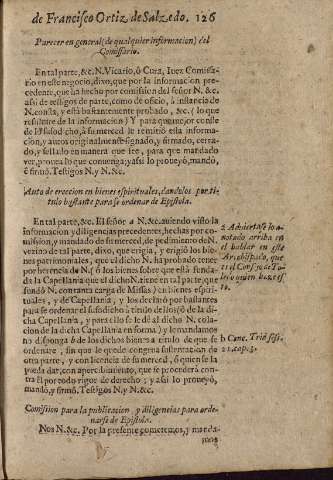 de Francisco Ortiz de Salzedo. 126
Parecer en general (de qualquier informacion) del
Comissario.
En tal parte, &c. N. Vicario, ò Cura, Juez Comissa-
rio en este negocio, dixo, que por la informacion pre-
cedente, que ha hecho por comission del señor N. &c.
assi de testigos de parte, como de oficio, à instancia de
N. consta, y està bastantemente probado, &c. (lo que
resultare de la informacion) Y para que mejor conste
de lo susodicho, à su merced le remitiò esta informa-
cion, y autos originalmente signado, y firmado, cerra-
do, y sellado en manera que fee, para que mandado
ver, provea lo que convenga; y assi lo proveyò, mandò,
è firmò. Testigos N. y N. &c.
Auto de ereccion en bienes espirituales, dandolos por ti-
tulo bastante para se ordenar de Epistola.
En tal parte, &c. El señor a N. &c. aviendo visto la
informacion y diligencias precedentes, hechas por co-
mission, y mandado de su merced, de pedimento de N.
vezino de tal parte, dixo, que erigia, y erigiò los bie-
nes patrimoniales, que el dicho N. ha probado tener
por herencia de N. (ò los bienes sobre que està funda-
da la Capellania que el dicho N. tiene en tal parte, que
fundò N. con tanta carga de Missas) en bienes espiri-
tuales, y de Capellania, y los declarò por bastantes
para se ordenar el susodicho à titulo de los (ò de la di-
cha Capellania, y para ello se le dè al dicho N. cola-
cion de la dicha Capellania en forma) y le mandamos
no disponga b de los dichos bienes à titulo de que se
ordenare, sin que le quede congrua sustentacion de
otra parte, y con licencia de su merced, ò quien se la
pueda dar, con apercebimiento, que se procederà con-
tra èl por todo rigor de derecho; y assi lo proveyò,
mandò, y firmò. Testigos N. y N. &c.
Comission para la publicacion, y diligencias para orde-
narse de Epistola.
Nos N. &c. Por la presente cometemos, y manda-
mos
a Adviertase lo a-
notado arriba en
el hablar en este
Arzobispado, que
es el Consejo de To-
ledo quien haze es-
to.
b Conc. Trid. sess.
21. cap. 2.